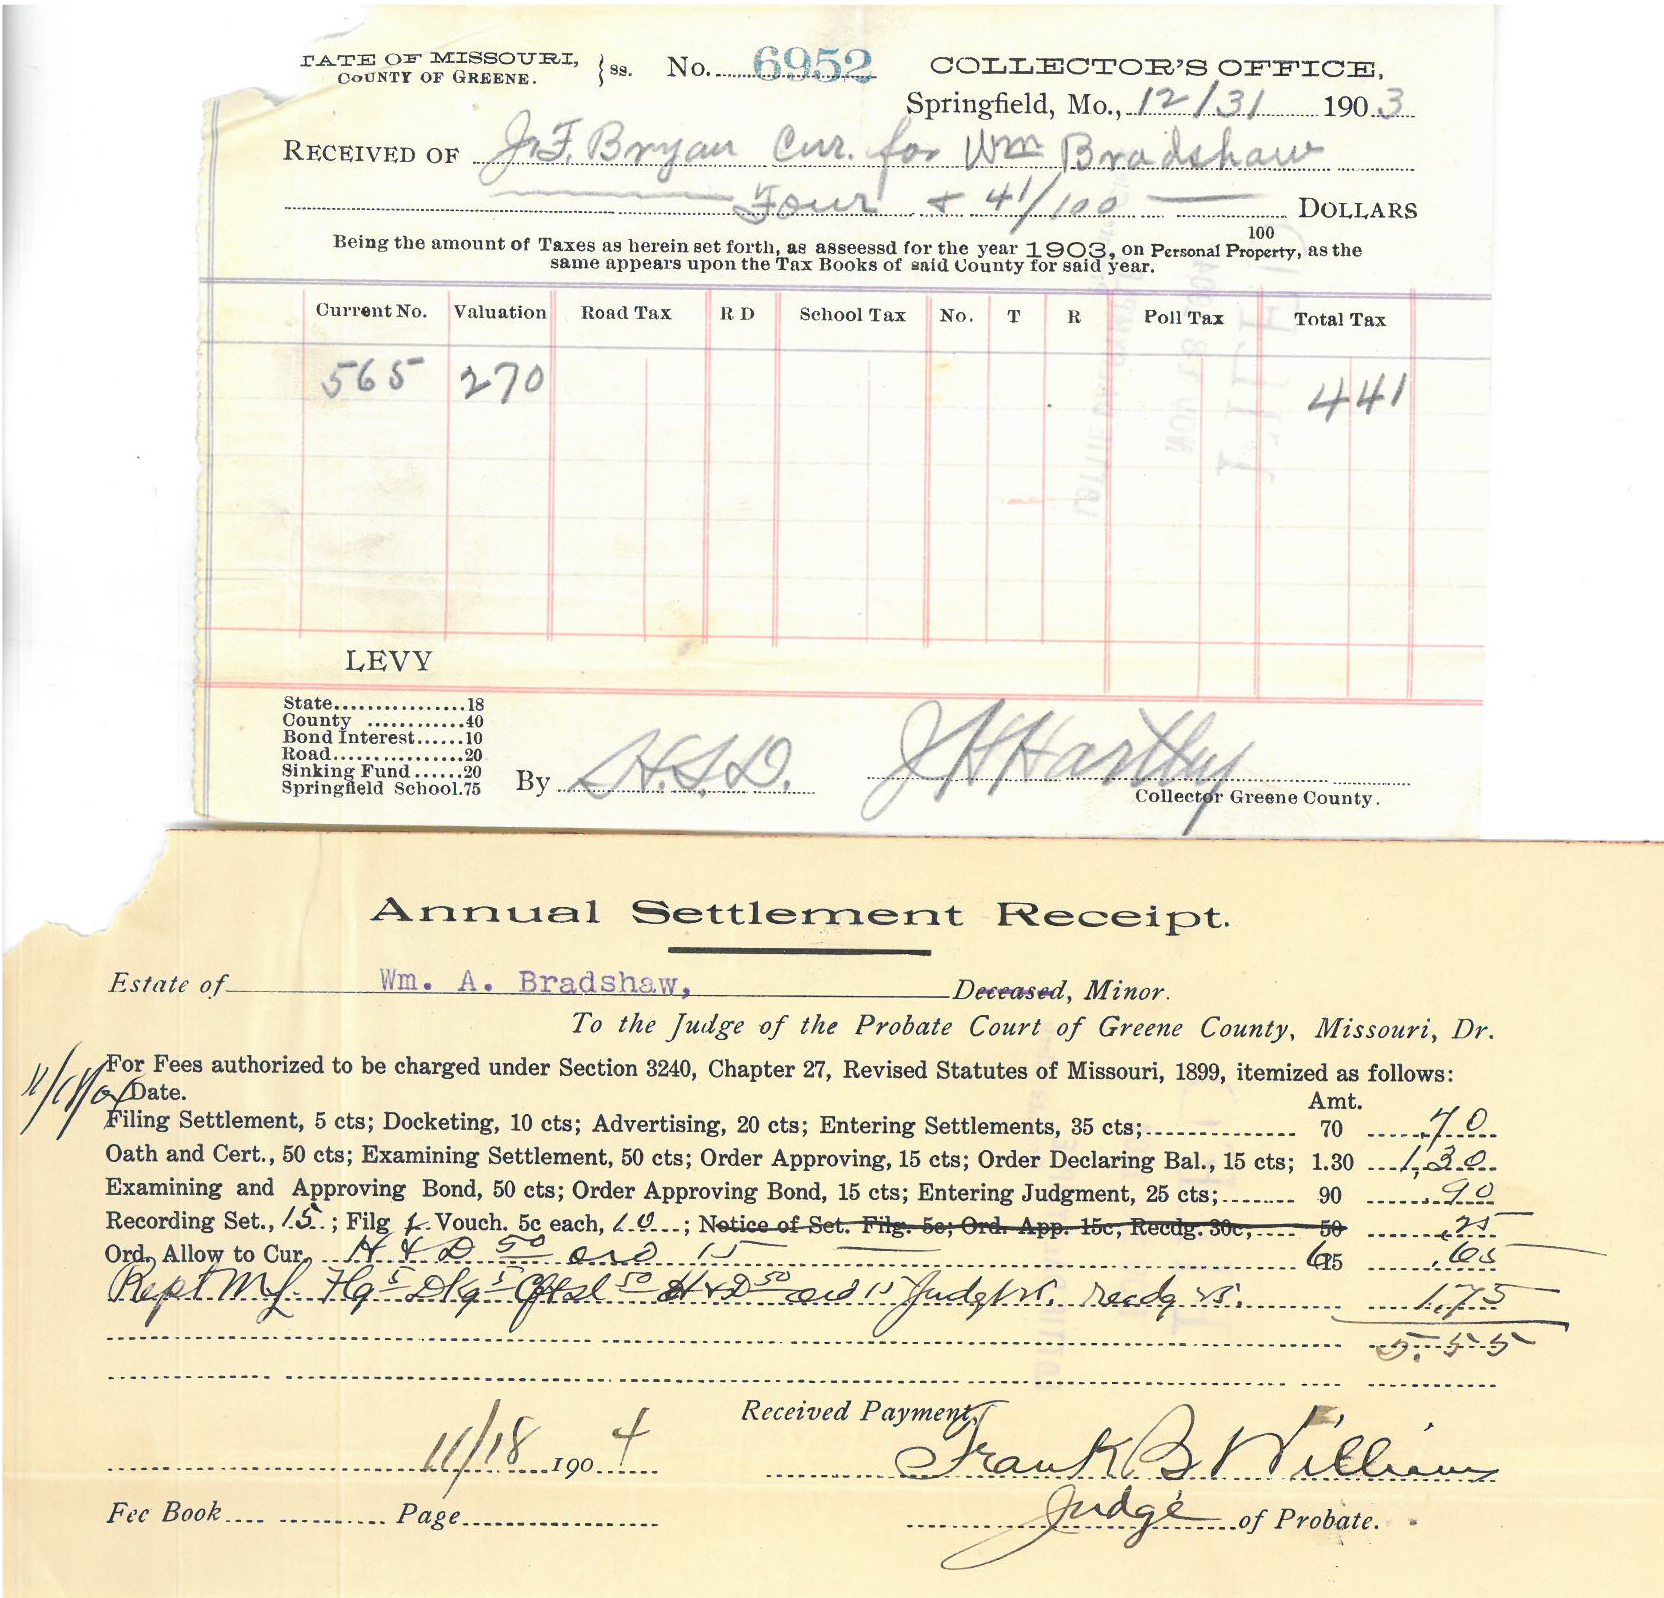 TATE OF MISSOURI,
COUNTY OF GREENE.
}ss. No. 6952
COLLECTOR'S OFFICE,
Springfield, Mo., 12/31 1903
RECEIVED OF J.F. Bryan Cur. for Wm Bradshaw
Four & 41/100 DOLLARS
100
Being the amount of Taxes as herein set forth, as asseessd for the year 1903, on Personal Property, as the
same appears upon the Tax Books of said County for said year.
Current No. Valuation Road Tax R D School Tax No. T R Poll Tax Total Tax
565 270 4 41
LEVY
State................18
County ............40
Bond Interest......10
Road................20
Sinking Fund ......20
Springfield School.75
By H.S.D. J H Hartley
Collector Greene County.
Annual Settlement Receipt.
Estate of Wm. A. Bradshaw, Deceased, Minor.
To the Judge of the Probate Court of Greene County, Missouri, Dr.
For Fees authorized to be charged under Section 3240, Chapter 27, Revised Statutes of Missouri, 1899, itemized as follows:
Date. Amt.
Filing Settlement, 5 cts; Docketing, 10 cts; Advertising, 20 cts; Entering Settlements, 35 cts; 70 70
Oath and Cert., 50 cts; Examining Settlement, 50 cts; Order Approving, 15 cts; Order Declaring Bal., 15 cts; 1.30 1,30
Examining and Approving Bond, 50 cts; Order Approving Bond, 15 cts; Entering Judgment, 25 cts; 90 .90
Recording Set., 15 ; Filg 2 Vouch. 5c each, 10 ; Notice of Set. Filg. 5c; Ord. App. 15c, Recdg. 30c, 50 .25
Ord. Allow to Cur. H & D 50 ord 15 65 .65
Rept M L. Flg 5 Dkg 5 50 H & D 50 ord 15 Judgt 25, recdg 25. 1.75
5.55
Received Payment,
11/18 1904 Frank B Williams
Fee Book Page Judge of Probate.